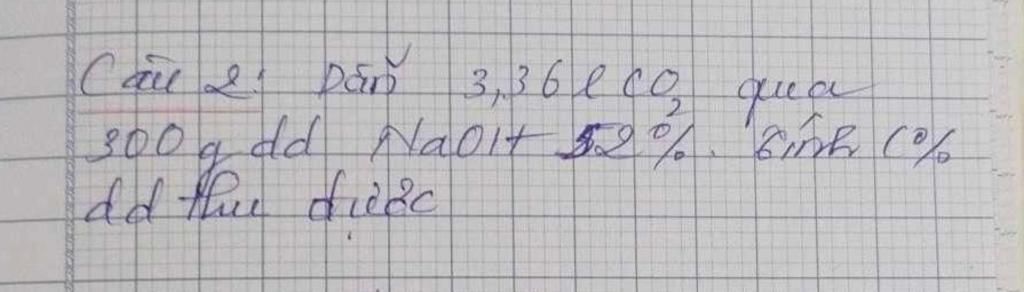 Câu 2: Dẫn 3,36 l CO2 qua
300 g dd NaOH 52%. Tính C%
dd thu được